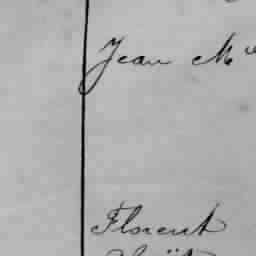 Jean M
Florent